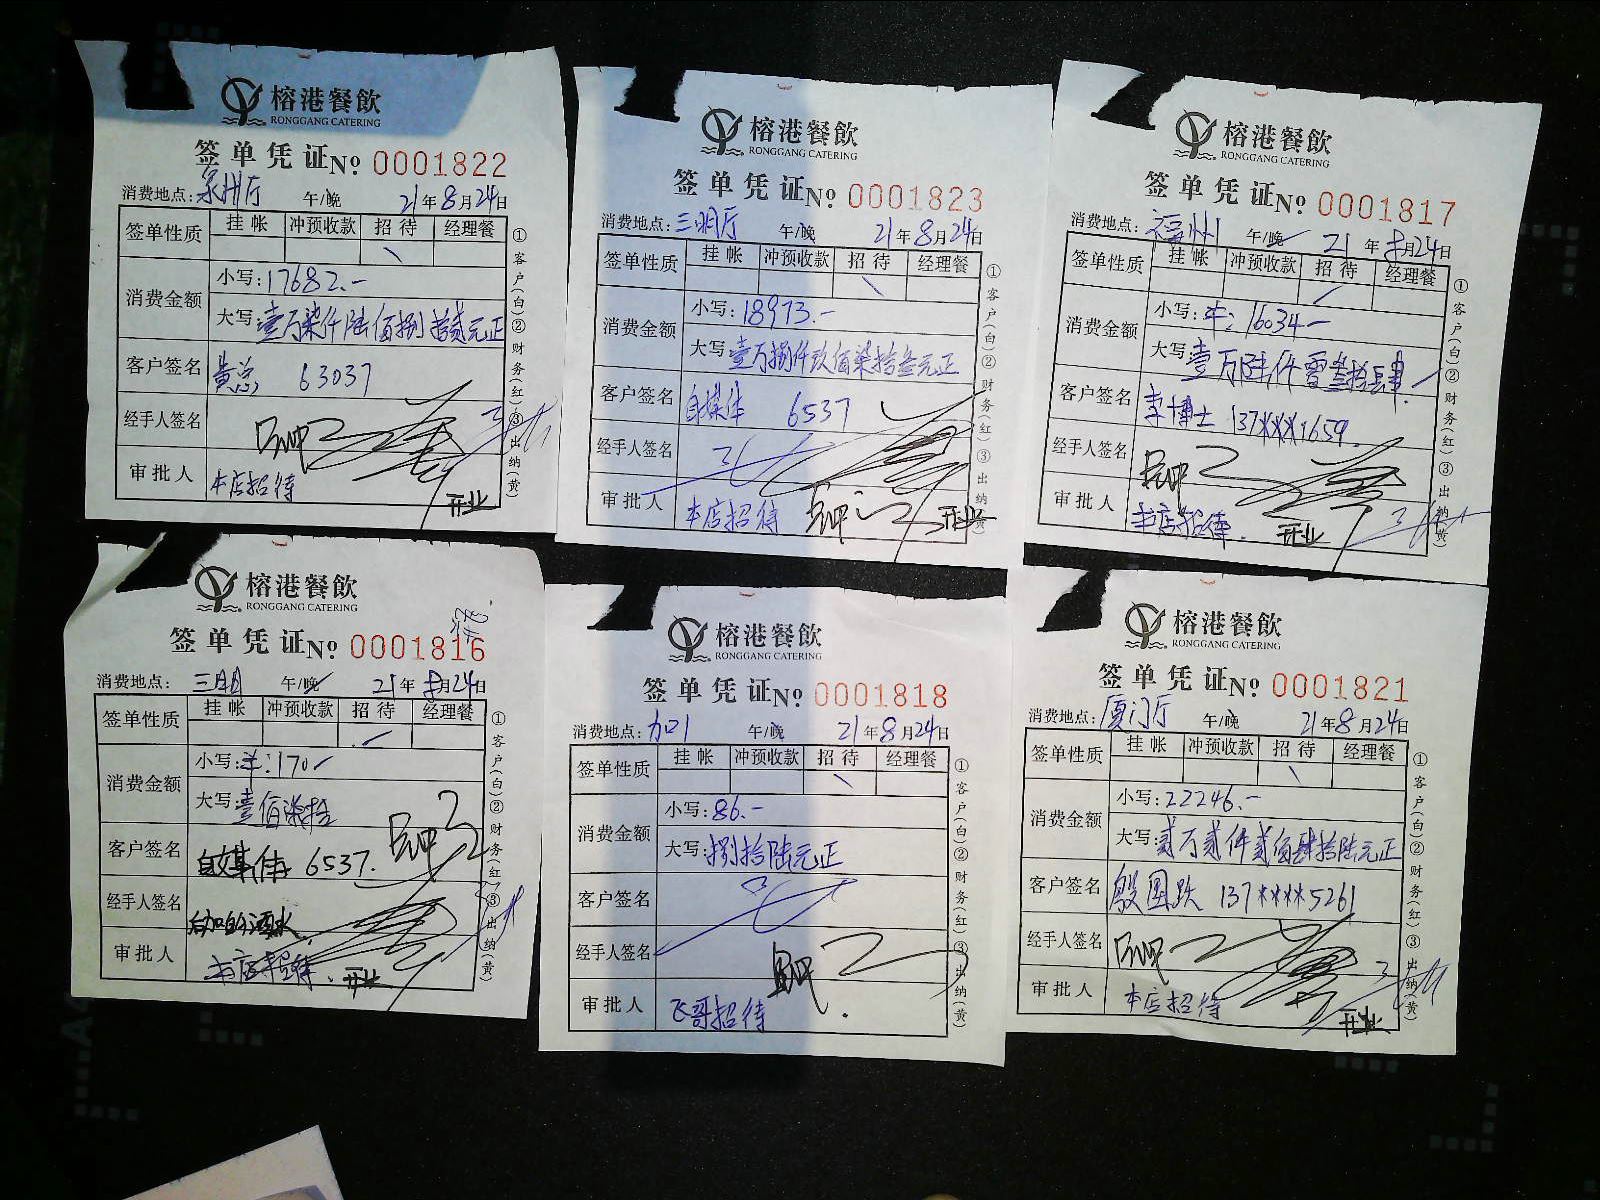 榕港餐飲
RONGGANG CATERING
签单凭证 No 0001822
消费地点: 泉州厅 午/晚 21年8月24日
签单性质 挂帐 冲预收款 招待 经理餐
消费金额 小写: 17682.-
大写: 壹万柒仟陆佰捌拾贰元正
客户签名 黄总 63037
经手人签名
审批人 本店招待
开业
①客户(白)②财务(红)③出纳(黄)
榕港餐飲
RONGGANG CATERING
签单凭证 No 0001823
消费地点: 三明厅 午/晚 21年8月24日
签单性质 挂帐 冲预收款 招待 经理餐
消费金额 小写: 18973.-
大写: 壹万捌仟玖佰柒拾叁元正
客户签名 自媒体 6537
经手人签名
审批人 本店招待
开业
①客户(白)②财务(红)③出纳(黄)
榕港餐飲
RONGGANG CATERING
签单凭证 No 0001817
消费地点: 福州 午/晚 21年8月24日
签单性质 挂帐 冲预收款 招待 经理餐
消费金额 小写: 16034-
大写: 壹万陆仟零叁拾肆
客户签名 李博士 137***1659.
经手人签名
审批人 本店招待.
开业
①客户(白)②财务(红)③出纳(黄)
榕港餐飲
RONGGANG CATERING
签单凭证 No 0001816
消费地点: 三明 午/晚 21年8月24日
签单性质 挂帐 冲预收款 招待 经理餐
消费金额 小写: 170-
大写: 壹佰柒拾
客户签名 自媒体 6537.
经手人签名
审批人 本店招待.
开业
①客户(白)②财务(红)③出纳(黄)
榕港餐飲
RONGGANG CATERING
签单凭证 No 0001818
消费地点: 午/晚 21年8月24日
签单性质 挂帐 冲预收款 招待 经理餐
消费金额 小写: 86.-
大写: 捌拾陆元正
客户签名
经手人签名
审批人 飞哥招待
①客户(白)②财务(红)③出纳(黄)
榕港餐飲
RONGGANG CATERING
签单凭证 No 0001821
消费地点: 厦门厅 午/晚 21年8月24日
签单性质 挂帐 冲预收款 招待 经理餐
消费金额 小写: 22246.-
大写: 贰万贰仟贰佰肆拾陆元正
客户签名 殷国跃 137****5261
经手人签名
审批人 本店招待
开业
①客户(白)②财务(红)③出纳(黄)